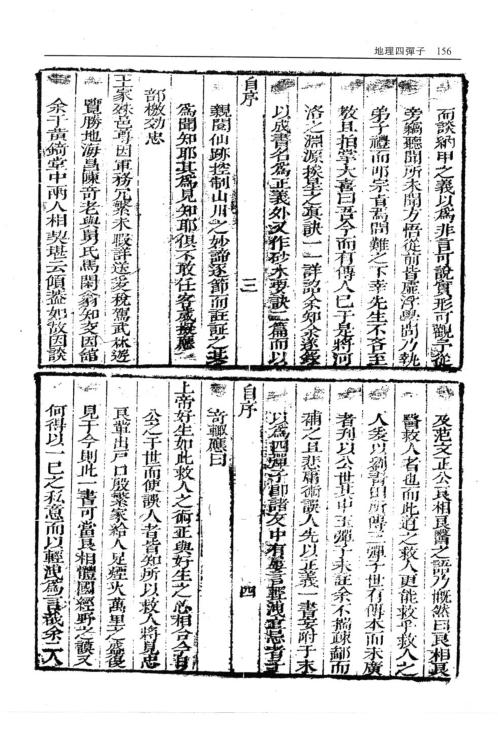 地理四彈子 156
而談納甲之義以為非言可說實形可觀予從
旁竊聽聞所未聞方悟從前皆虛浮學問乃執
弟子禮而卭宗旨焉問難之下幸先生不吝至
教且拍掌大喜曰吾今而有傳人巳于是將河
洛之淵源挨星之真訣一一詳諮余知余遂錄
以成書名為正義外又作砂水要訣二篇而以
自序
三
親閱仙跡控制山川之妙論逐節而註証之其
為聞知耶其為見知耶俱不敢任客歲擬應
部檄効忠
王家殊邑尊因軍務冗繁未暇詳送爰稅駕武林遊
覽勝地海昌陳奇老與舅氏馬閑翁知交因舘
余于黃錡堂中兩人相契堪云傾蓋如故因談
及范文正公良相良醫之語乃慨然曰良相良
醫救人者也而此道之救人更能救乎救人之
人奚以續書曰所傳三彈子世有傳本而未廣
者刊以公世其中玉彈子未註余不揣疎鄙而
補之且悲庸術誤人先以正義一書妄附于末
以為四彈子即諸友中有屢言輕洩宜忌者予
自序
四
嵜輙應曰
上帝好生如此救人之術正與好生之心相合今旨
公之于世而使誤人者皆知所以救人將見忠
良輩出戶口殷繁家給人足煙火萬里之盛復
見于今則此一書可當良相體國經野之謨又
何得以一巳之私意而以輕洩為言哉余二人